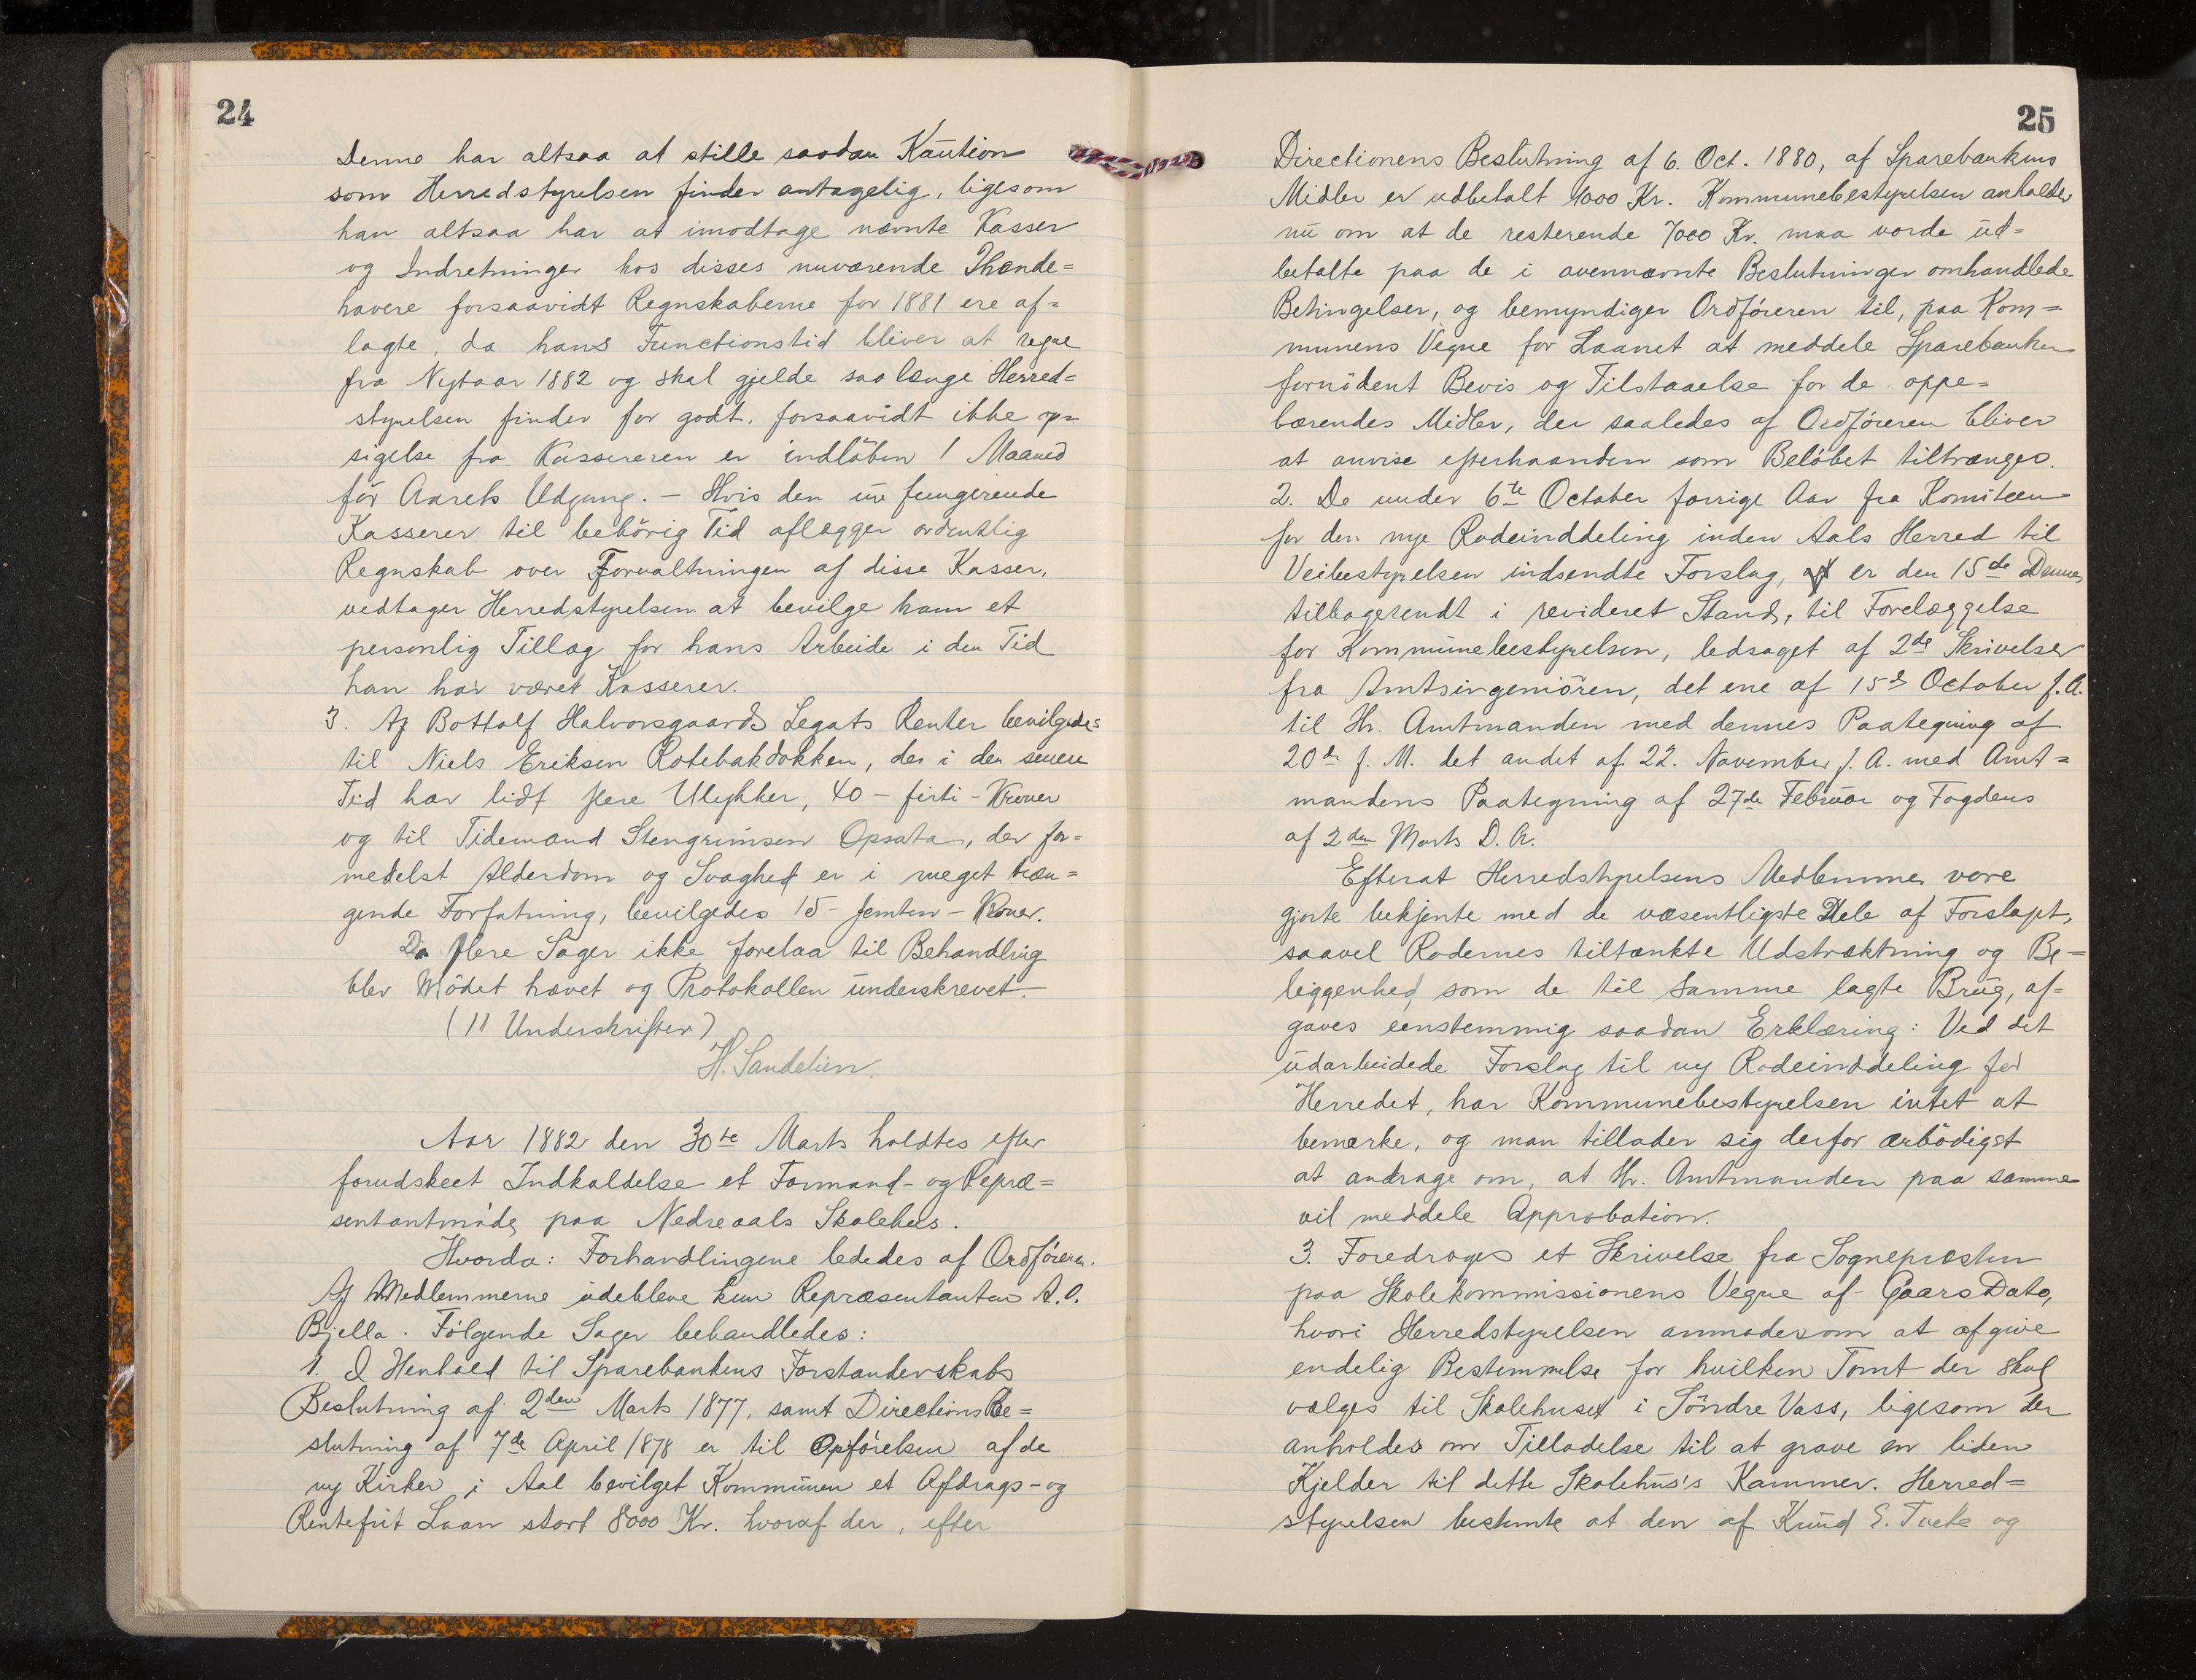 24
Denne har altsaa at stille saadan Kaution
som Herredstyrelsen finder antagelig, ligesom
han altsaa har at imodtage nævnte Kasser
og Indretninger hos disses nuværende Ihænde=
havere forsaavidt Regnskaberne for 1881 ere af=
lagte, da hans Functionstid bliver at regne
fra Nytaar 1882 og skal gjelde saa længe Herred=
styrelsen finder for godt, forsaavidt ikke op=
sigelse fra Kassereren er indløben 1 Maaned
før Aarets Udgang. – Hvis den nu fungerende
Kasserer til behörig Tid aflægger ordentlig
Regnskab over Forvaltningen af disse Kasser,
vedtager Herredstyrelsen at bevilge ham et
personlig Tillæg for hans Arbeide i den Tid
han har været Kasserer.
3. Af Bottolf Halvorsgaards Legats Renter bevilgedes
til Niels Eriksen Rotebakdokken, der i den senere
Tid har lidt flere Ulykker, 40 – firti – Kroner
og til Tidemand Stengrimsen Opsata, der for=
medelst Alderdom og Svaghed er i meget træn=
gende Forfatning, bevilgedes 15 – femten – Kroner.
Da flere Sager ikke forelaa til Behandling
blev Mödet hævet og Protokollen underskrevet.
(11 Underskrifter)
H. Sandelien.
Aar 1882 den 30te Marts holdtes efter
forudskeet Indkaldelse et Formand- og Repræ=
sentantmöde paa Nedreaals Skolehus.
Hvorda: Forhandlingene lededes af Ordföreren.
Af Medlemmerne udebleve kun Repræsentanten A. O.
Bjella. Følgende Sager behandledes:
1. I Henhold til Sparebankens Forstanderskabs
Beslutning af 2den Marts 1877, samt Directions Be=
slutning af 7de April 1878 er til Opförelsen af de
ny Kirker i Aal bevilget Kommunen et Afdrags- og
Rentefrit Laan stort 8000 Kr. hvoraf der, efter
25
Directionens Beslutning af 6. Oct. 1880, af Sparebankens
Midler er udbetalt 1000 Kr. Kommunebestyrelsen anholder
nu om at de resterende 7000 Kr. maa vorde ud=
betalte paa de i ovennævnte Beslutninger omhandlede
Betingelser, og bemyndiger Ordföreren til, paa Kom=
munens Vegne for Laanet at meddele Sparebanken
fornödent Bevis og Tilstaaelse for de oppe=
bærendes Midler, der saaledes af Ordföreren bliver
at anvise efterhaanden som Belöbet tiltrænges.
2. De under 6te October forrige Aar fra Komiteen
for den nye Rodeinddeling inden Aals Herred til
Veibestyrelsen indsendte Forslag, er den 15de Dennes
tilbagesendt i revideret Stand, til Forelæggelse
for Kommunebestyrelsen, ledsaget af 2de Skrivelser
fra Amtsingeniören, det ene af 15de October f. A.
til Hr. Amtmanden med dennes Paategning af
20de f. M. det andet af 22. November f. A. med Amt=
mandens Paategning af 27de Februar og Fogdens
af 2den Marts D. A.
Efterat Herredstyrelsens Medlemmer vare
gjorte bekjente med de væsentligste Dele af Forslaget,
saavel Rodernes tiltænkte Udstrækning og Be=
liggenhed som de til samme lagte Brug, af=
gaves eenstemmig saadan Erklæring: Ved det
udarbeidede Forslag til ny Rodeinddeling for
Herredet, har Kommunebestyrelsen intet at
bemærke, og man tillader sig derfor ærbödigst
at andrage om, at Hr. Amtmanden paa samme
vil meddele Approbation.
3. Foredroges et Skrivelse fra Sognepræsten
paa Skolekommissionens Vegne af Gaars Dato,
hvori Herredstyrelsen anmodes om at afgive
endelig Bestemmelse for hvilken Tomt der skal
vælges til Skolehuset i Söndre Vass, ligesom der
anholdes om Tilladelse til at grave en liden
Kjelder til dette Skolehus's Kammer. Herred=
styrelsen bestemte at den af Knud E. Tuete og